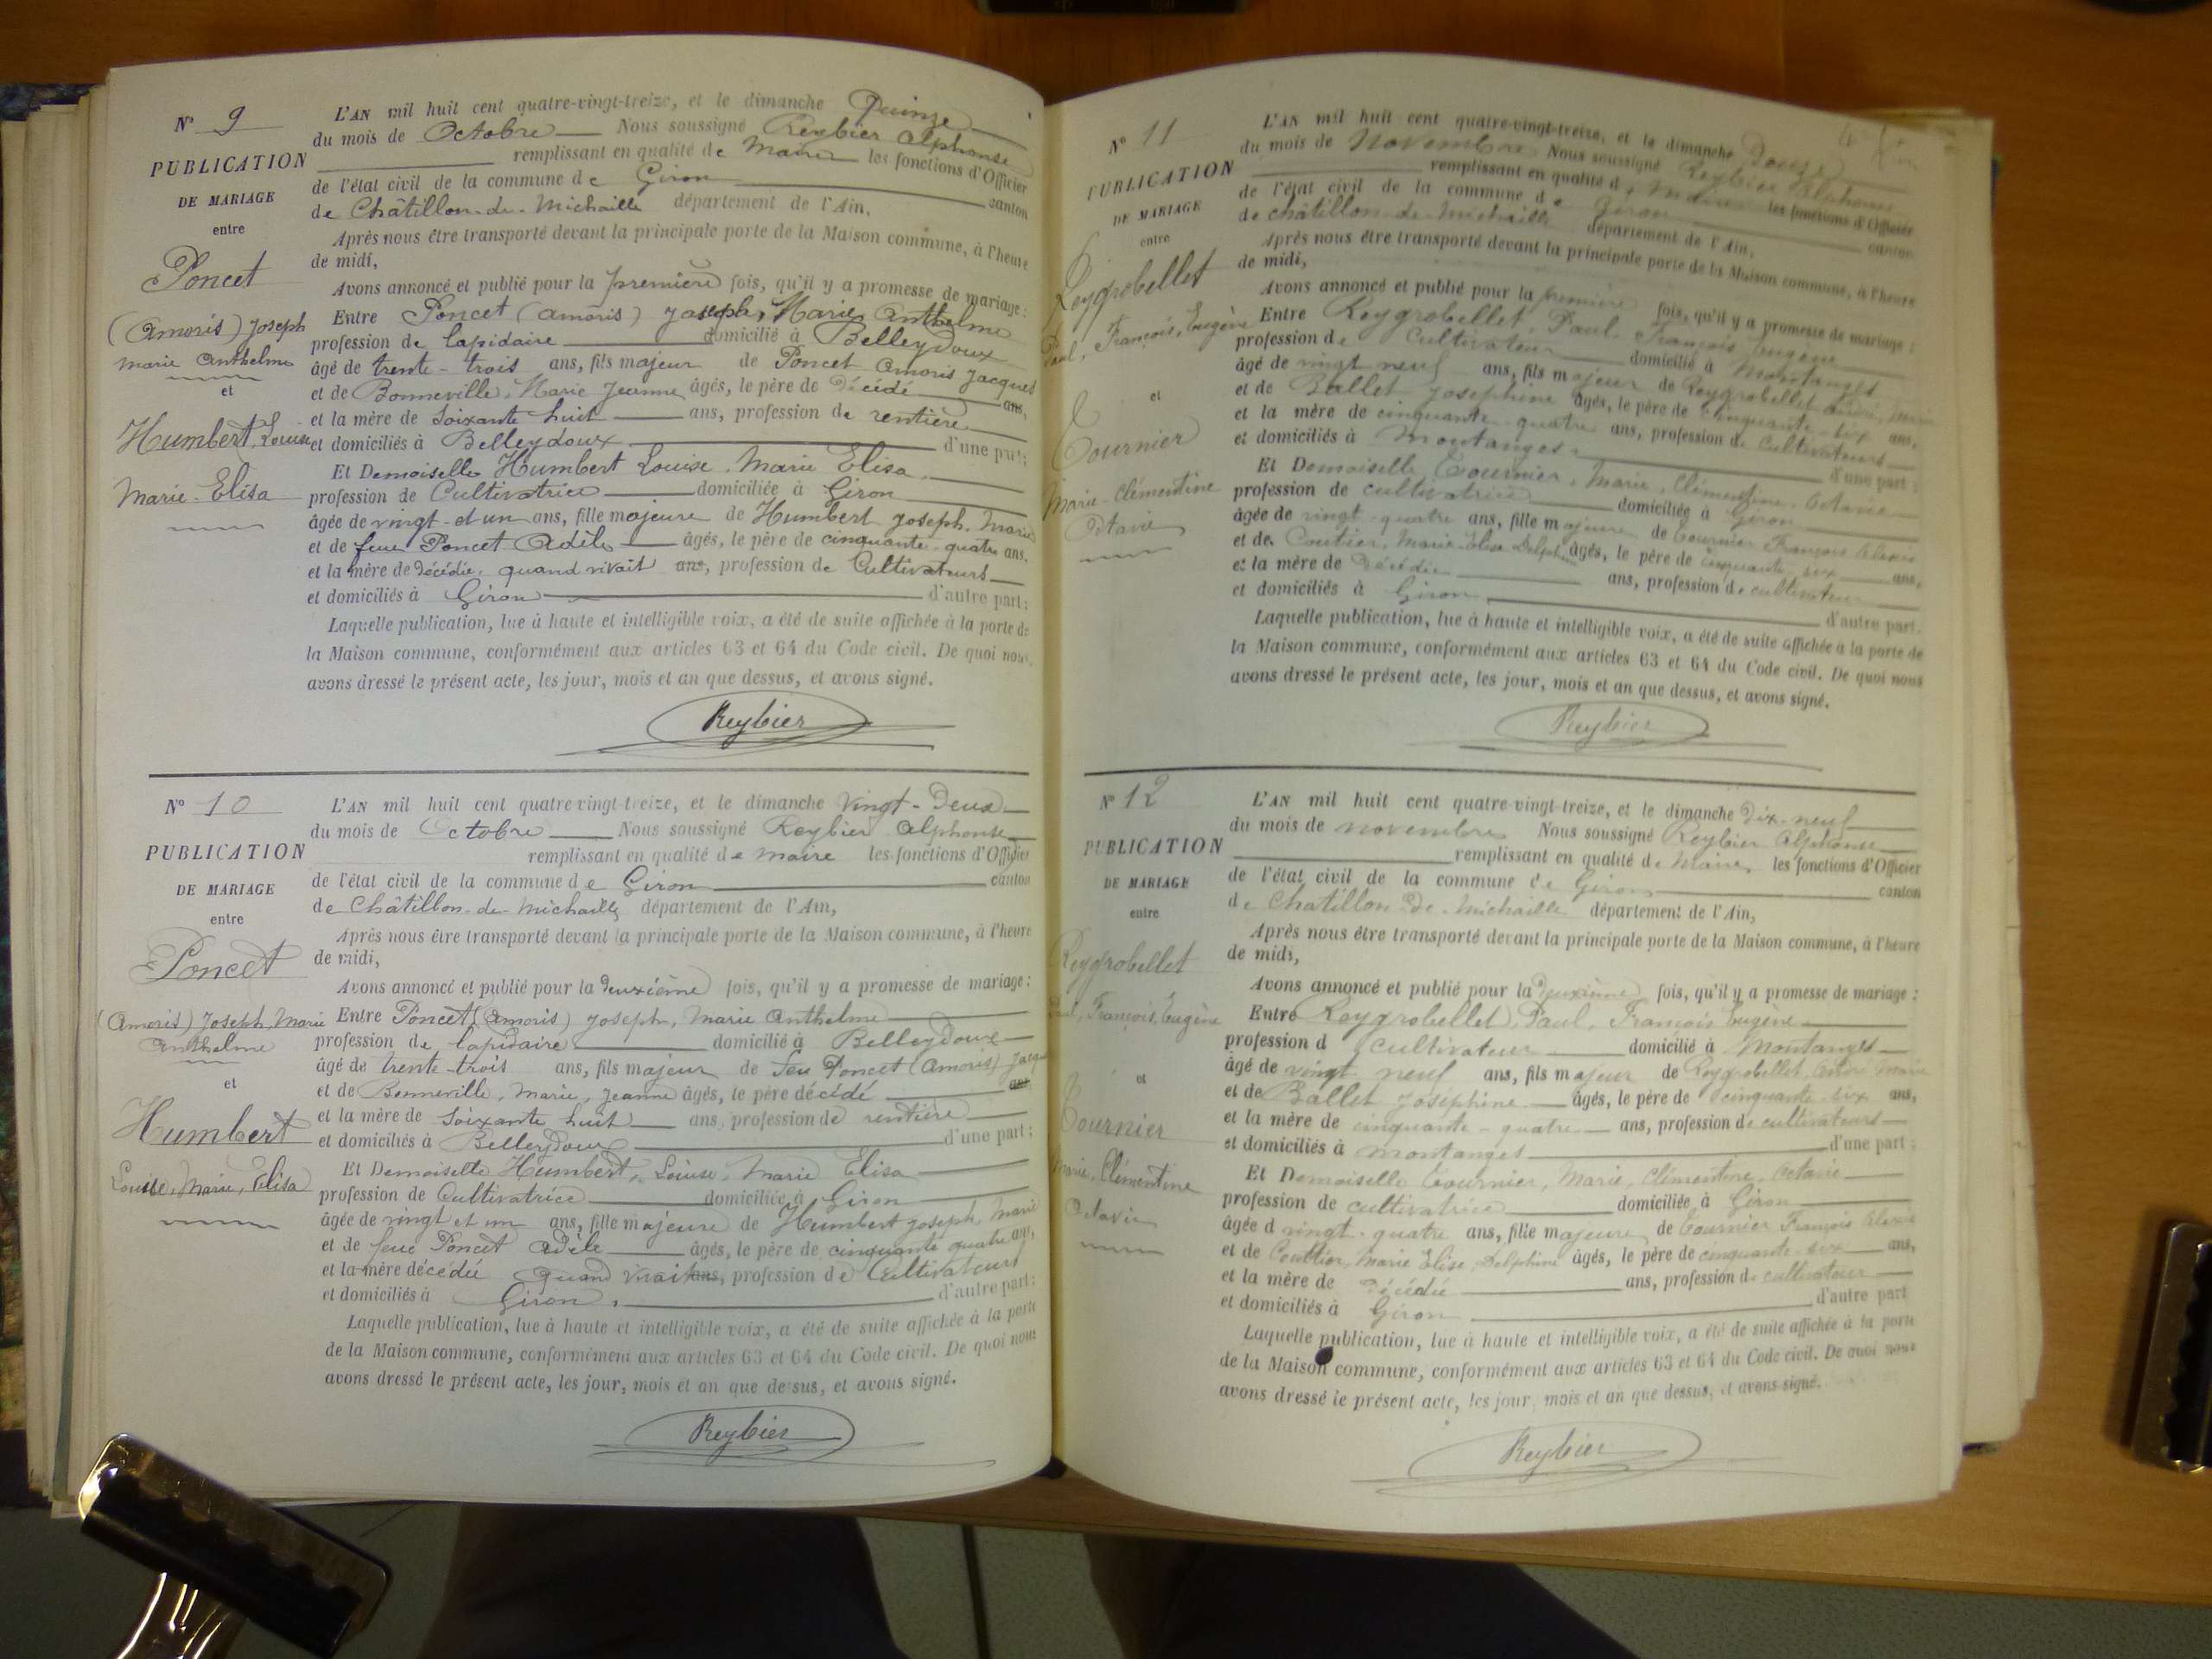 N° 9
PUBLICATION
DE MARIAGE
entre
Poncet
(Amoris) Joseph
Marie Anthelme
et
Humbert, Louise
Marie Elisa
L'AN mil huit cent quatre-vingt-treize, et le dimanche Quinze
du mois de Octobre Nous soussigné Reybier Alphonse
remplissant en qualité de Maire les fonctions d'Officier
de l'état civil de la commune de Giron canton
de Châtillon-de-Michaille département de l'Ain,
Après nous être transporté devant la principale porte de la Maison commune, à l'heure
de midi,
Avons annoncé et publié pour la première fois, qu'il y a promesse de mariage :
Entre Poncet (Amoris) Joseph, Marie Anthelme
profession de lapidaire domicilié à Belleydoux
âgé de trente-trois ans, fils majeur de Poncet Amoris Jacques
et de Bonneville, Marie Jeanne âgés, le père de Décédé ans,
et la mère de Soixante huit ans, profession de rentière
et domiciliés à Belleydoux d'une part;
Et Demoiselle Humbert Louise, Marie Elisa
profession de Cultivatrice domiciliée à Giron
âgée de vingt-et un ans, fille majeure de Humbert Joseph, Marie
et de feue Poncet Adèle âgés, le père de cinquante-quatre ans,
et la mère de décédée, quand vivait ans, profession de Cultivateurs
et domiciliés à Giron d'autre part;
Laquelle publication, lue à haute et intelligible voix, a été de suite affichée à la porte de
la Maison commune, conformément aux articles 63 et 64 du Code civil. De quoi nous
avons dressé le présent acte, les jour, mois et an que dessus, et avons signé.
Reybier
N° 10
PUBLICATION
DE MARIAGE
entre
Poncet
(Amoris) Joseph, Marie
Anthelme
et
Humbert
Louise, Marie, Elisa
L'AN mil huit cent quatre-vingt-treize, et le dimanche Vingt-Deux
du mois de Octobre Nous soussigné Reybier Alphonse
remplissant en qualité de maire les fonctions d'Officier
de l'état civil de la commune de Giron canton
de Châtillon-de-Michaille département de l'Ain,
Après nous être transporté devant la principale porte de la Maison commune, à l'heure
de midi,
Avons annoncé et publié pour la deuxième fois, qu'il y a promesse de mariage :
Entre Poncet (Amoris) Joseph, Marie Anthelme
profession de lapidaire domicilié à Belleydoux
âgé de trente-trois ans, fils majeur de feu Poncet (Amoris) Jacques
et de Bonneville, Marie, Jeanne âgés, le père décédé ans
et la mère de Soixante huit ans, profession de rentière
et domiciliés à Belleydoux d'une part;
Et Demoiselle Humbert, Louise, Marie Elisa
profession de Cultivatrice domiciliée à Giron
âgée de vingt et un ans, fille majeure de Humbert Joseph, Marie
et de feue Poncet Adèle âgés, le père de cinquante quatre ans,
et la mère décédée quand vivait ans, profession de Cultivateurs
et domiciliés à Giron, d'autre part;
Laquelle publication, lue à haute et intelligible voix, a été de suite affichée à la porte
de la Maison commune, conformément aux articles 63 et 64 du Code civil. De quoi nous
avons dressé le présent acte, les jour, mois et an que dessus, et avons signé.
Reybier
N° 11
PUBLICATION
DE MARIAGE
entre
Reygrobellet
Paul, François, Eugène
et
Tournier
Marie-Clémentine
Octavie
L'AN mil huit cent quatre-vingt-treize, et le dimanche Douze
du mois de Novembre Nous soussigné Reybier Alphonse
remplissant en qualité de Maire les fonctions d'Officier
de l'état civil de la commune de Giron canton
de châtillon-de-Michaille département de l'Ain,
Après nous être transporté devant la principale porte de la Maison commune, à l'heure
de midi,
Avons annoncé et publié pour la première fois, qu'il y a promesse de mariage :
Entre Reygrobellet, Paul, François Eugène
profession de Cultivateur domicilié à Montanges
âgé de vingt neuf ans, fils majeur de Reygrobellet
et de Ballet Joséphine âgés, le père de cinquante-six ans,
et la mère de cinquante-quatre ans, profession de Cultivateurs
et domiciliés à Montanges d'une part;
Et Demoiselle Tournier, Marie, Clémentine, Octavie
profession de cultivatrice domiciliée à Giron
âgée de vingt-quatre ans, fille majeure de Tournier François Alexis
et de Coutier, Marie Elise Delphine âgés, le père de cinquante-six ans,
et la mère de Décédée ans, profession de cultivateur
et domiciliés à Giron d'autre part.
Laquelle publication, lue à haute et intelligible voix, a été de suite affichée à la porte de
la Maison commune, conformément aux articles 63 et 64 du Code civil. De quoi nous
avons dressé le présent acte, les jour, mois et an que dessus, et avons signé.
Reybier
N° 12
PUBLICATION
DE MARIAGE
entre
Reygrobellet
Paul, François, Eugène
et
Tournier
Marie, Clémentine
Octavie
L'AN mil huit cent quatre-vingt-treize, et le dimanche Dix-neuf
du mois de novembre Nous soussigné Reybier Alphonse
remplissant en qualité de Maire les fonctions d'Officier
de l'état civil de la commune de Giron canton
de Chatillon-de-Michaille département de l'Ain,
Après nous être transporté devant la principale porte de la Maison commune, à l'heure
de midi,
Avons annoncé et publié pour la Deuxième fois, qu'il y a promesse de mariage :
Entre Reygrobellet, Paul, François Eugène
profession d cultivateur domicilié à Montanges
âgé de vingt neuf ans, fils majeur de Reygrobellet, marie
et de Ballet Joséphine âgés, le père de cinquante-six ans,
et la mère de cinquante-quatre ans, profession de cultivateurs
et domiciliés à Montanges d'une part;
Et Demoiselle Tournier, Marie, Clémentine, Octavie
profession de cultivatrice domiciliée à Giron
âgée d vingt-quatre ans, fille majeure de Tournier François Alexis
et de Coutier, Marie Elise, Delphine âgés, le père de cinquante-six ans,
et la mère de Décédée ans, profession de cultivateur
et domiciliés à Giron d'autre part
Laquelle publication, lue à haute et intelligible voix, a été de suite affichée à la porte
de la Maison commune, conformément aux articles 63 et 64 du Code civil. De quoi nous
avons dressé le présent acte, les jour, mois et an que dessus, et avons signé.
Reybier